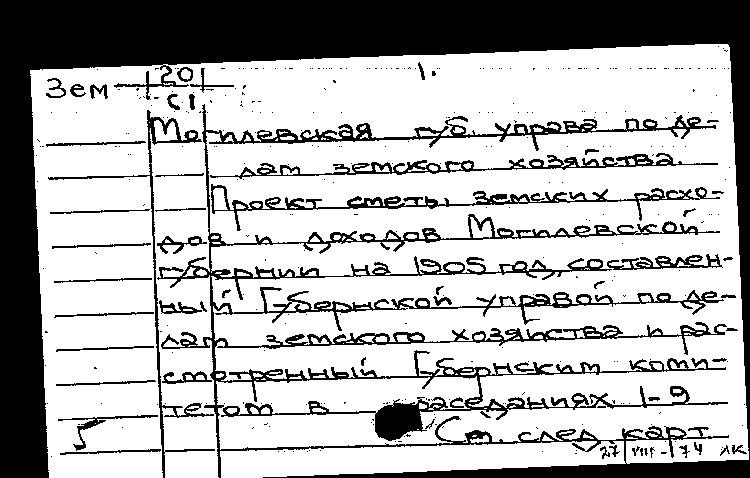 Зем 20 1.
С1
Могилевская губ. управа по де-
лам земского хозяйства.
Проект сметы земских расхо-
дов и доходов Могилевской
губернии на 1905 год, составлен-
ный Губернской управой по де-
лам земского хозяйства и рас-
смотренный Губернским коми-
тетом в заседаниях 1-9
5 См. след. карт
27/VIII-74 ЛК